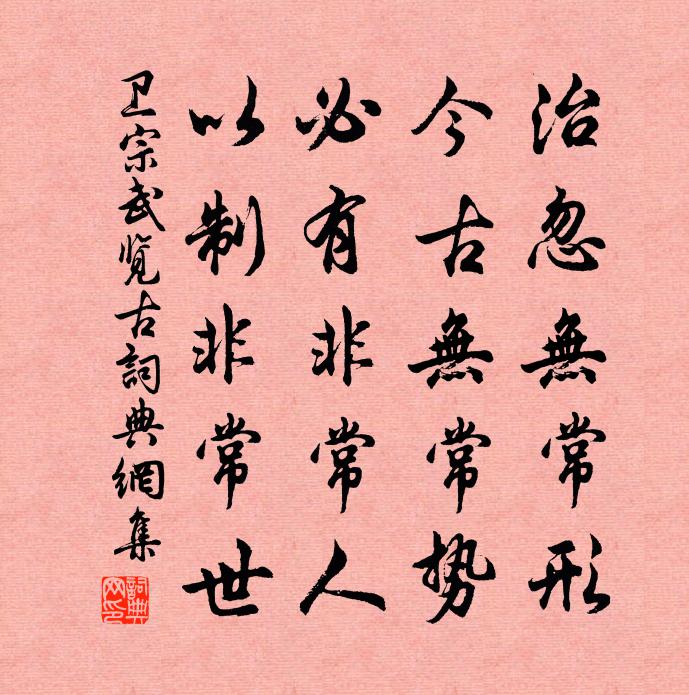 治忽無常形
今古無常势
必有非常人
以制非常世
卫宗武览古詞典網集
詞典
网印